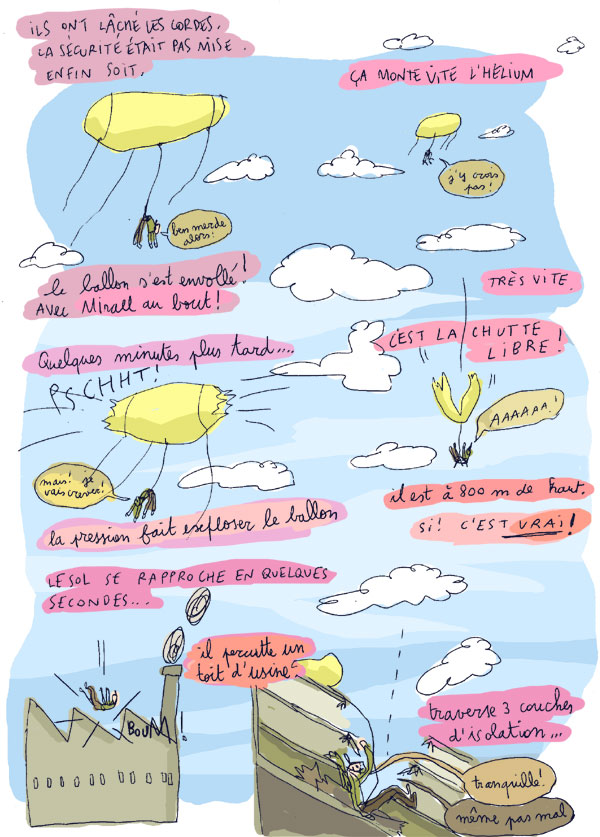 ILS ONT LÂCHÉ LES CORDES.
LA SÉCURITÉ ÉTAIT PAS MISE.
ENFIN SOIT.
ÇA MONTE VITE L'HÉLIUM
j'y crois
pas!
ben merde
alors!
le ballon s'est envollé!
AVEC Mirall au bout!
TRÈS VITE.
Quelques minutes plus tard....
PSCHHT!
C'EST LA CHUTTE
LIBRE!
AAAAAA!
mais! je
vais crever!
il est à 800 m de haut.
la pression fait exploser le ballon
si! C'EST VRAI!
LE SOL SE RAPPROCHE EN QUELQUES
SECONDES...
il percutte un
toit d'usine.
BOUM!
traverse 3 couches
d'isolation...
tranquille!
même pas mal